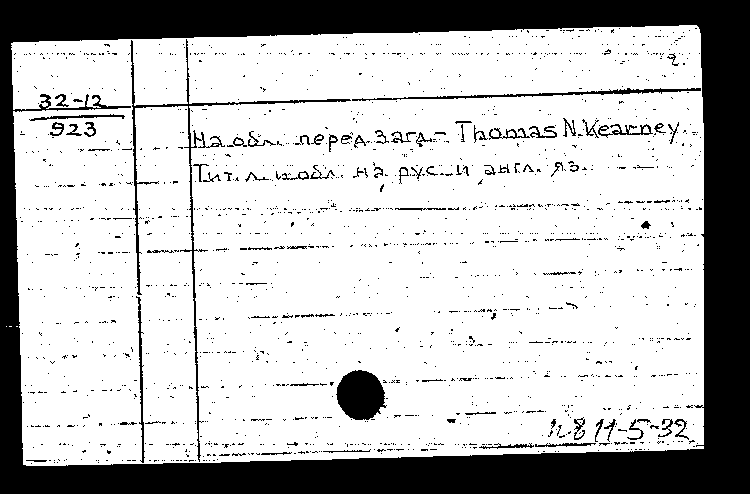 2
32-12
923
На обл. перед загл.- Thomas N. Kearney.
Тит. л. и обл. на рус. и англ. яз.
11-5-32